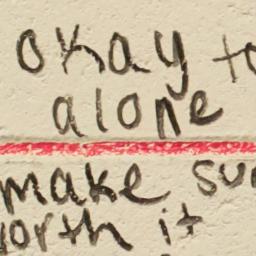 okay to
alone
make su
orth it